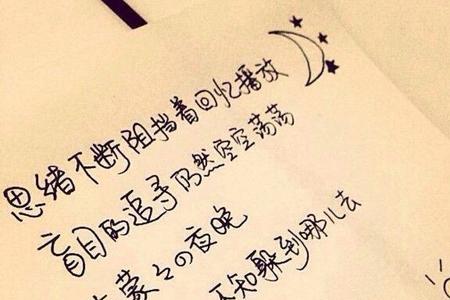 思绪不断阻挡着回忆播放
盲目的追寻仍然空空荡荡
蒙々の夜晚
不知躲到哪儿去